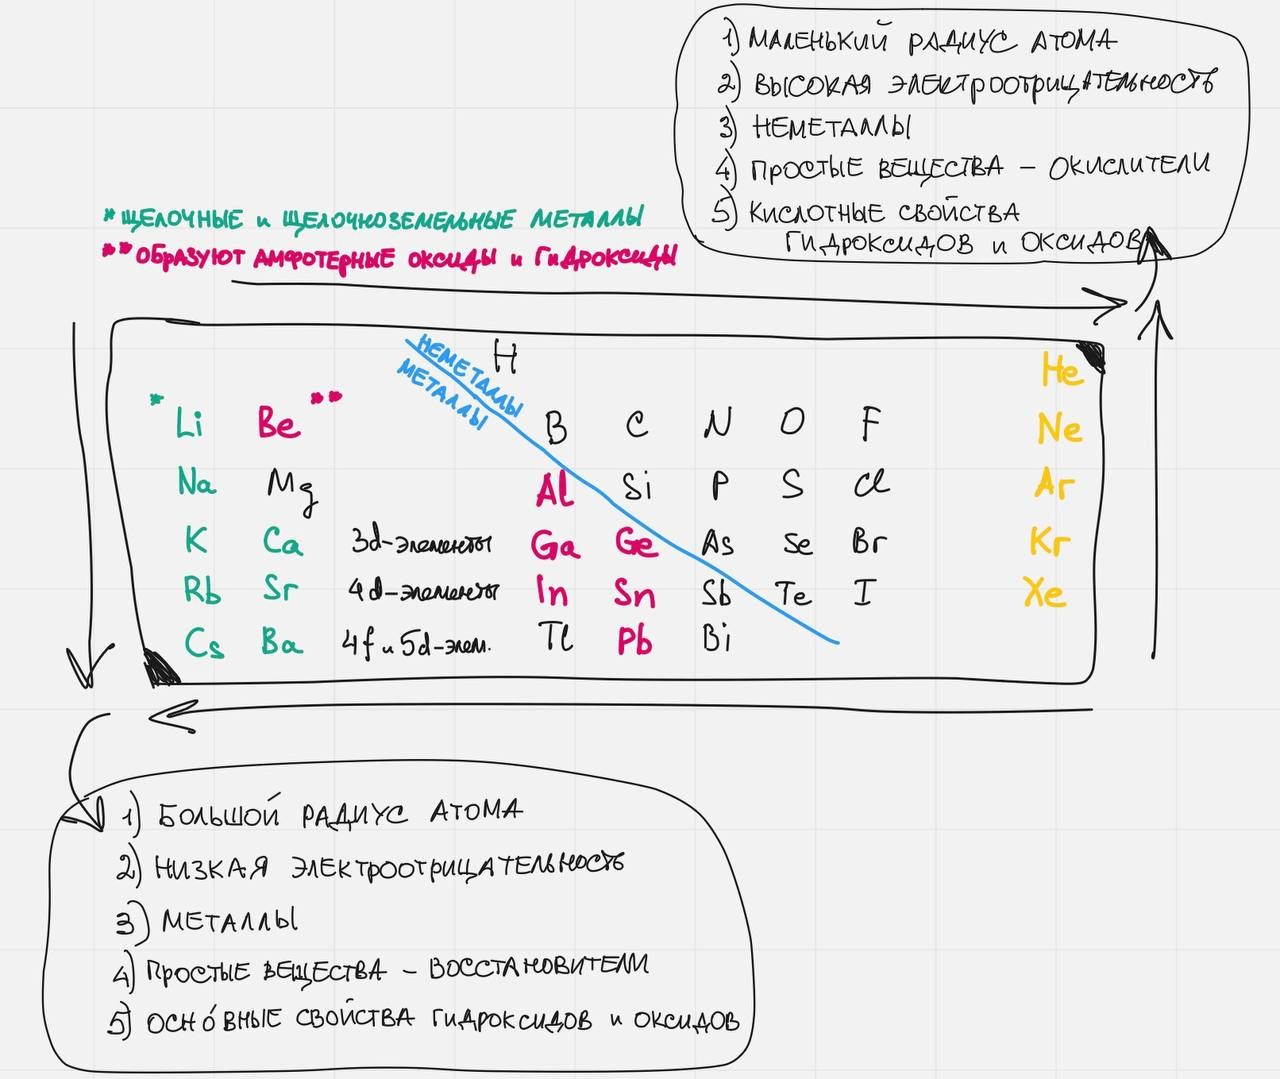 1) МАЛЕНЬКИЙ РАДИУС АТОМА
2) ВЫСОКАЯ ЭЛЕКТРООТРИЦАТЕЛЬНОСТЬ
3) НЕМЕТАЛЛЫ
4) ПРОСТЫЕ ВЕЩЕСТВА – ОКИСЛИТЕЛИ
5) КИСЛОТНЫЕ СВОЙСТВА
ГИДРОКСИДОВ и ОКСИДОВ
* ЩЕЛОЧНЫЕ и ЩЕЛОЧНОЗЕМЕЛЬНЫЕ МЕТАЛЛЫ
** ОБРАЗУЮТ АМФОТЕРНЫЕ ОКСИДЫ и ГИДРОКСИДЫ
НЕМЕТАЛЛЫ
МЕТАЛЛЫ
H He
* Li Be ** B C N O F Ne
Na Mg Al Si P S Cl Ar
K Ca 3d-элементы Ga Ge As Se Br Kr
Rb Sr 4d-элементы In Sn Sb Te I Xe
Cs Ba 4f и 5d-элем. Tl Pb Bi
1) БОЛЬШОЙ РАДИУС АТОМА
2) НИЗКАЯ ЭЛЕКТРООТРИЦАТЕЛЬНОСТЬ
3) МЕТАЛЛЫ
4) ПРОСТЫЕ ВЕЩЕСТВА – ВОССТАНОВИТЕЛИ
5) ОСНО́ВНЫЕ СВОЙСТВА ГИДРОКСИДОВ и ОКСИДОВ